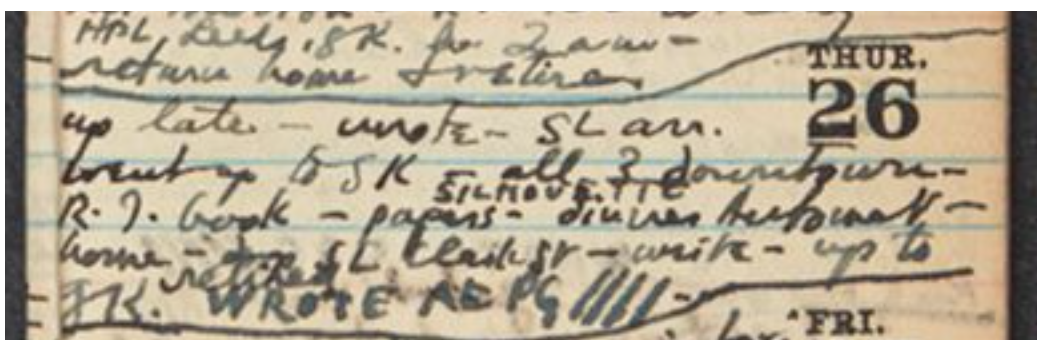 HPL, Leeds, SK. for 2 a m —
return home & retire
THUR.
26
up late — wrote — SL arr.
went up to SK — all 3 downtown —
SILHOUETTE
R. I. book — papers — dinner Automat —
home — SL Clark St — write — up to
retired
SK. WROTE AEPG ////-
FRI.